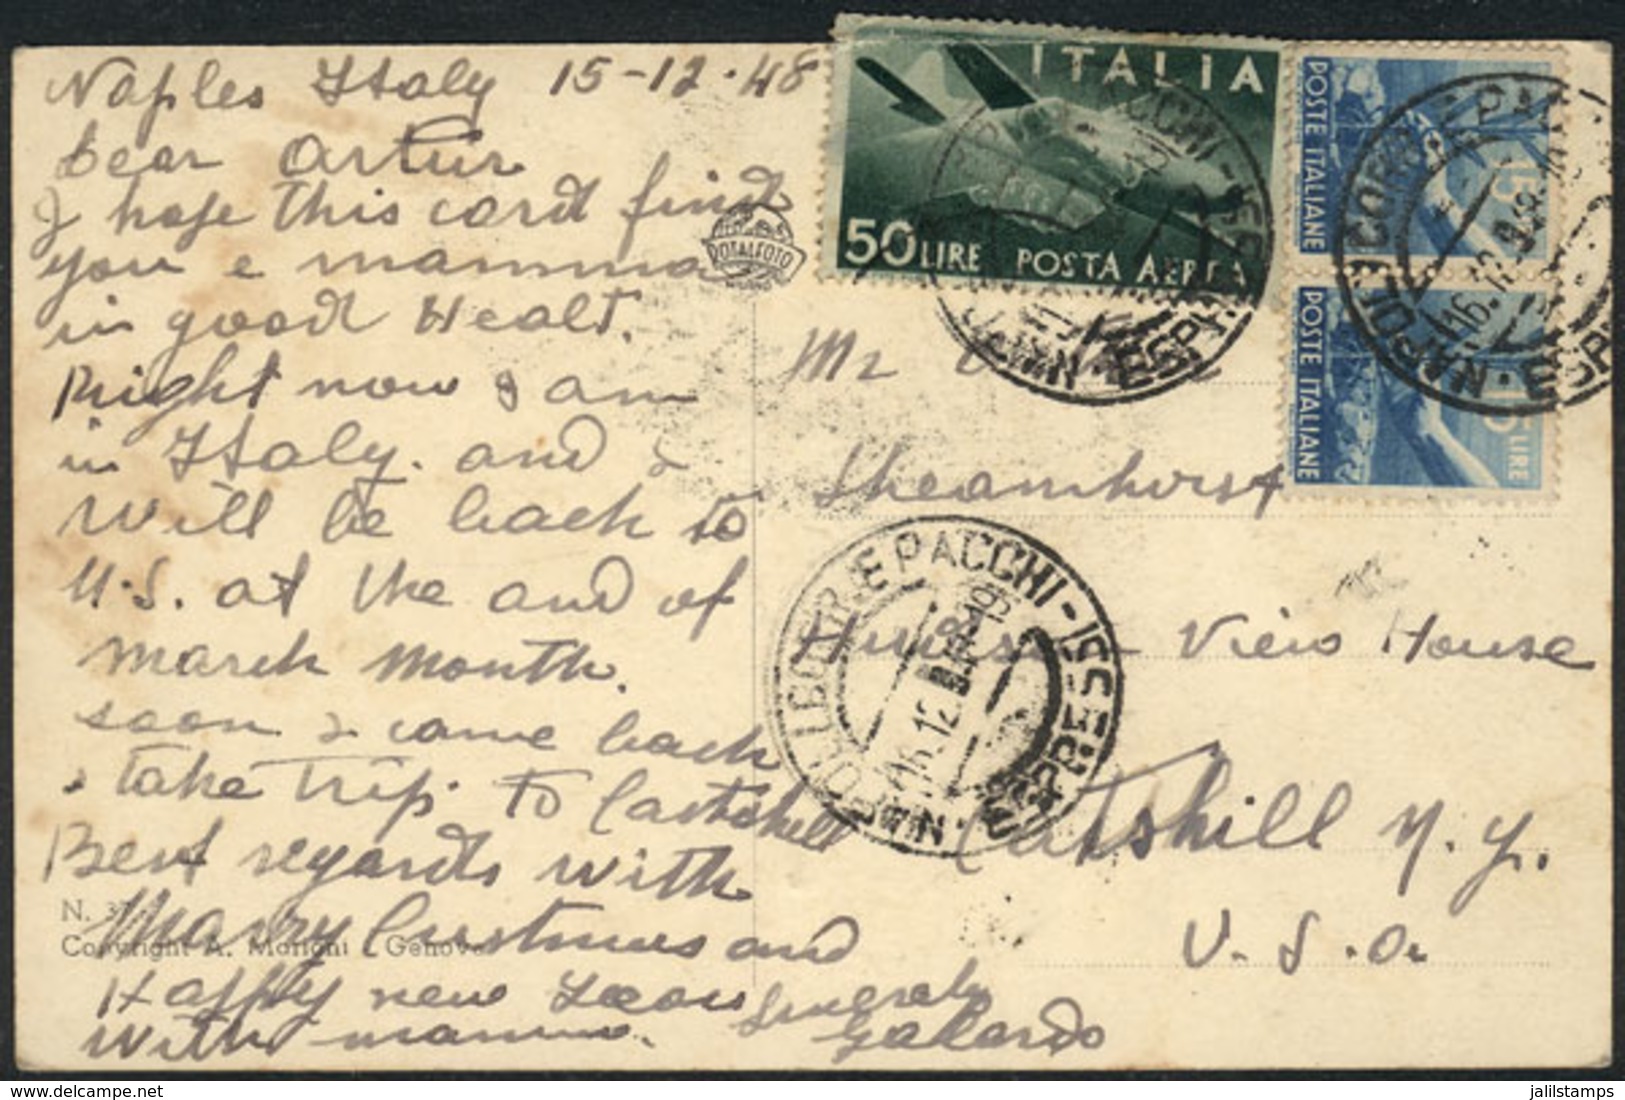 Naples Italy 15-12-48
Dear Artur
I hope this card find
you e mamma
in good Healt.
Right now I am
in Italy. and I
will be back to
U.S. at the and of
march month.
soon I came back
I take trip to Castskell
Best regards with
Marry Cristmas and
Happy new Years
with mamma.
Sincerely
Galardo
N. 37
Copyright A. Marioni Genova
ROTALFOTO
MILANO
ITALIA
50 LIRE POSTA AEREA
POSTE ITALIANE
15
POSTE ITALIANE
15 LIRE
NAPOLI CORR. E PACCHI - ESPRESSI
16.12.48
Mr
Sheamhurst
View House
Catskill N. Y.
U. S. a.
jalilstamps